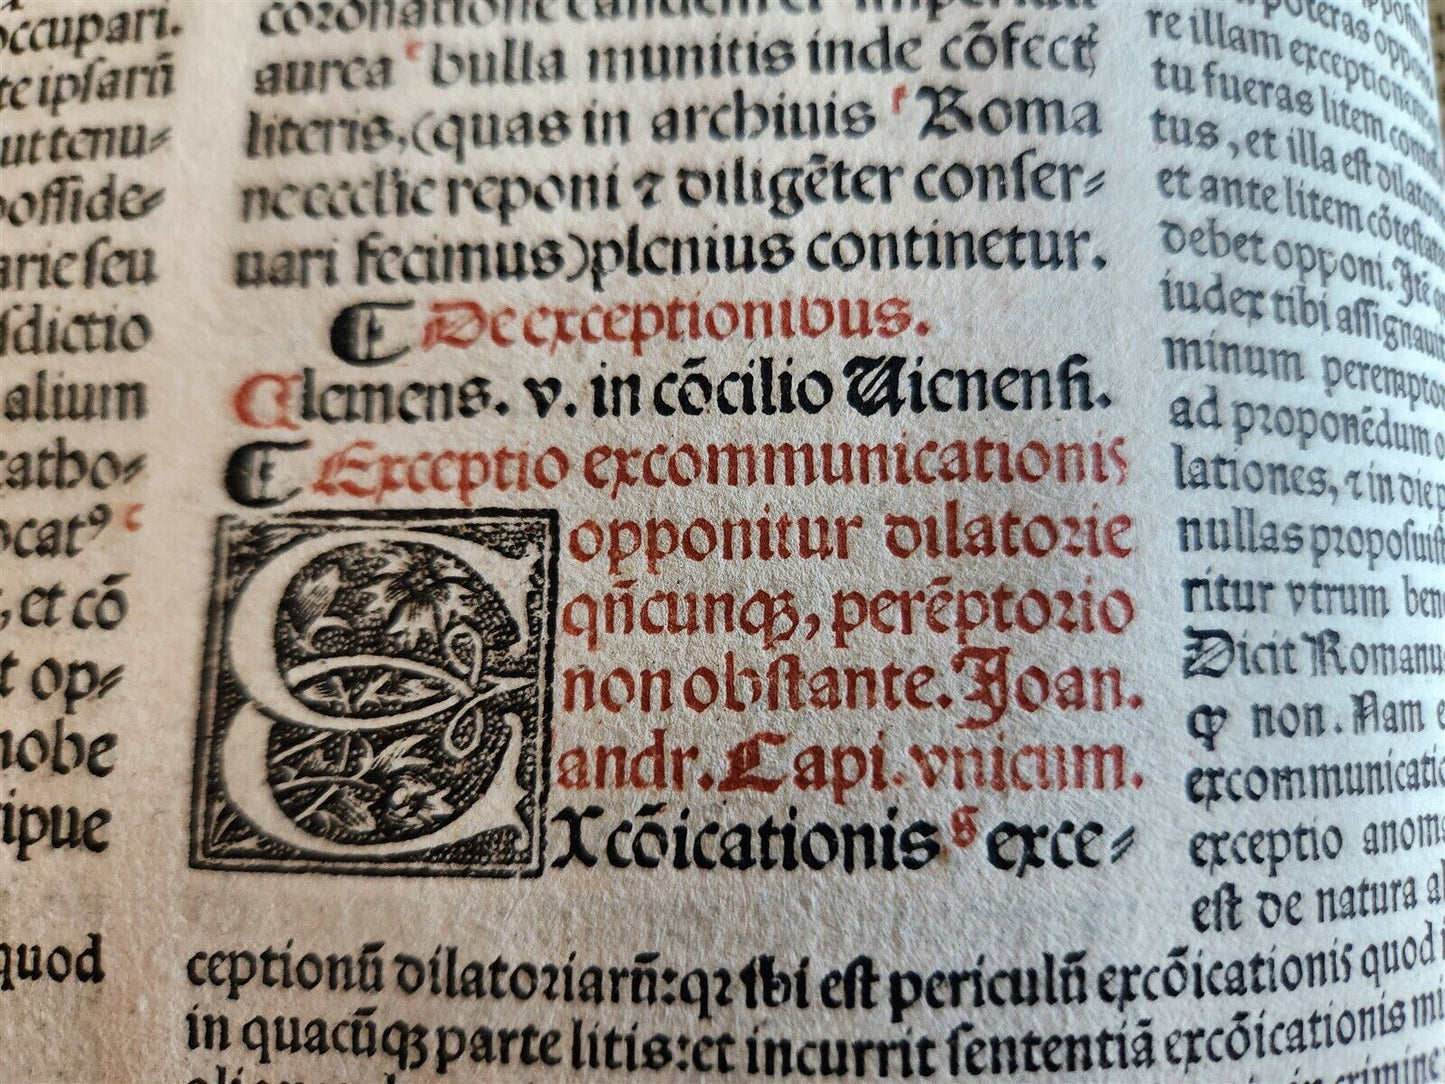 occupari.
te ipſarū
ut tenu⸗
poſſide⸗
arie ſeu
ſdictio
alium
catho⸗
ocatꝰ c
, et cō
t op⸗
nobe
ipue
quod
coꝛonatione eandem et imperiali
aurea e bulla munitis inde cōfectꝭ
literis, (quas in archiuis f Roma
ne eccłie reponi ⁊ diligēter conſer⸗
uari fecimus) plenius continetur.
¶ De exceptionibus.
Clemens. v. in cōcilio Uienenſi.
¶ Exceptio excommunicationis
opponitur dilatoꝛie
qn̄cunqꝫ, perēptoꝛio
non obſtante. Joan.
andr. Capi. vnicum.
EXcōicationis g exce⸗
ceptionū dilatoꝛiarū: qꝛ ibi eſt periculū excōicationis quod
in quacūqꝫ parte litis: et incurrit ſententiā excōicationis mi
crimine
poteras oppo
re illam exceptionem
tu fueras litem conteſ
tus, et illa eſt dilato
et ante litem cōteſtat
debet opponi. Itē
iudex tibi aſſignauit
minum peremptor
ad pꝛoponēdum o
lationes, ⁊ in die p
nullas pꝛopoſuiſt
ritur vtrum ben
Dicit Romanu
ꝙ non. Nam e
excommunicatio
exceptio anom
eſt de natura al